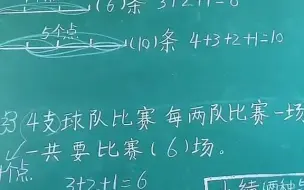 (6)条 3+2+1=6
5个点
(10)条 4+3+2+1=10
4支球队比赛 每两队比赛一场
一共要比赛(6)场。
个点
3+2+1=6
小结